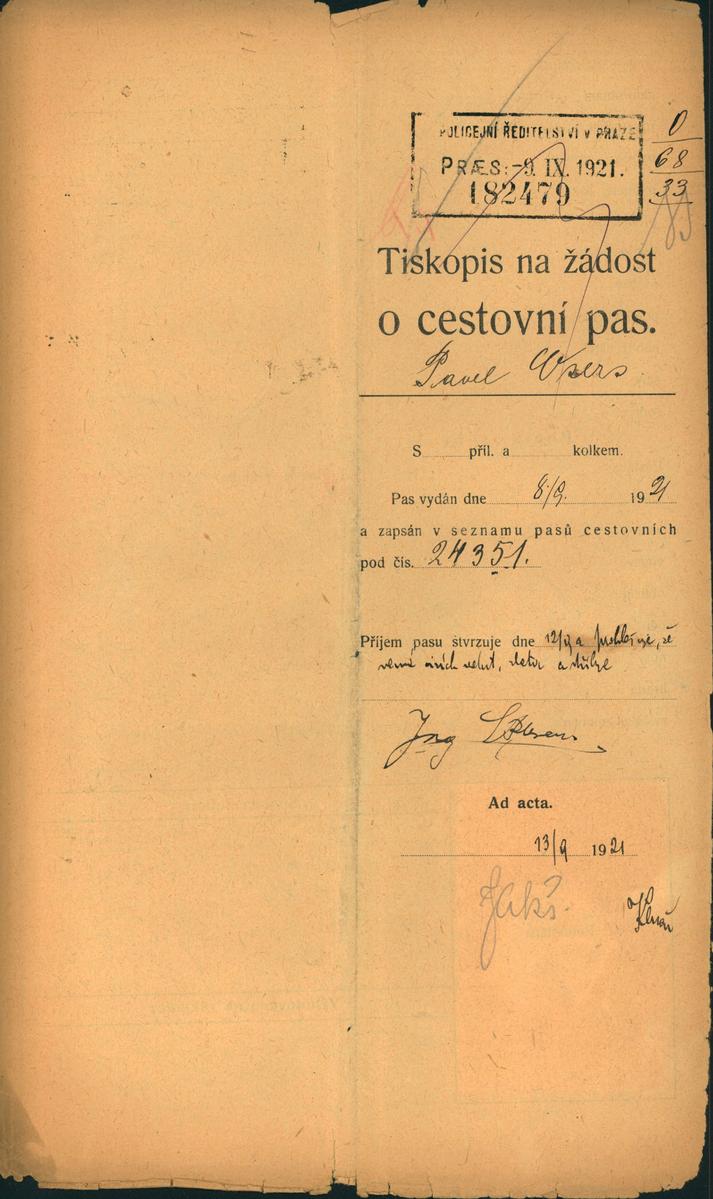 POLICEJNÍ ŘEDITELSTVÍ V PRAZE
PRÆS: -9. IX. 1921.
182479
0
68
33
Tiskopis na žádost
o cestovní pas.
Pavel
S příl. a kolkem.
Pas vydán dne 8/9. 1921
a zapsán v seznamu pasů cestovních
pod čís. 24351.
Příjem pasu stvrzuje dne 12/9 a prohlašuje, že
Ing
Ad acta.
13/9 1921